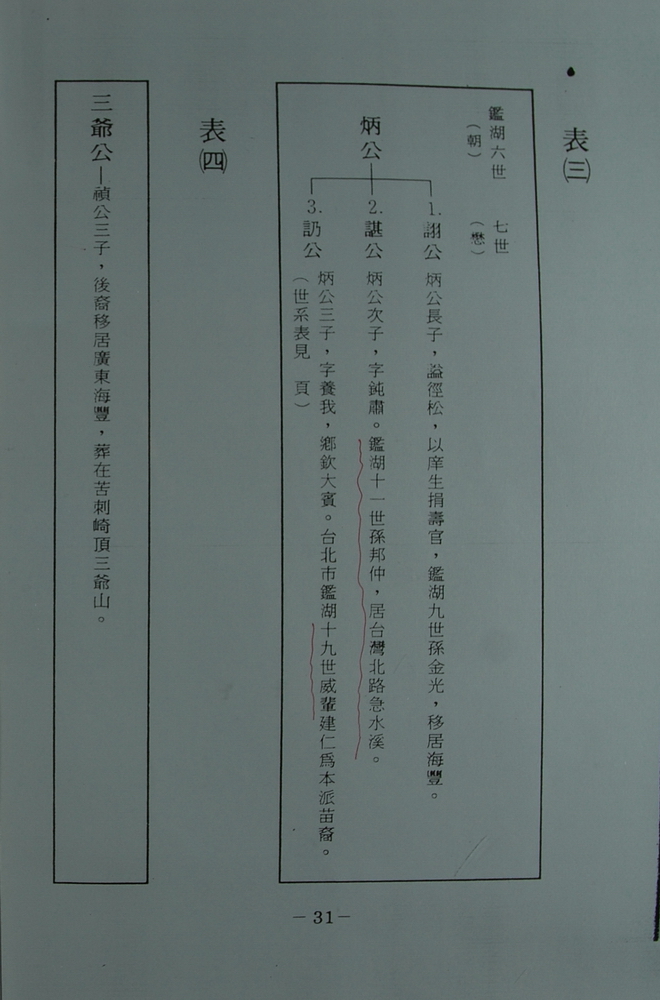 表㈢
鑑湖六世　七世
（朝）　（懋）
炳公
1.詡公　炳公長子，諡徑松，以庠生捐壽官，鑑湖九世孫金光，移居海豐。
2.諶公　炳公次子，字鈍肅。鑑湖十一世孫邦仲，居台灣北路急水溪。
3.訒公　炳公三子，字養我，鄉飲大賓。台北市鑑湖十九世威輩建仁爲本派苗裔。
（世系表見　頁）
表㈣
三爺公－禎公三子，後裔移居廣東海豐，葬在苦刺崎頂三爺山。
－31－